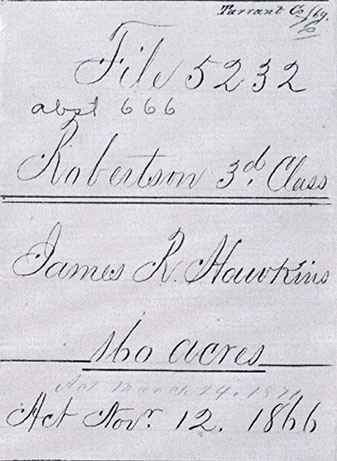 Tarrant Co
File 5232
abst 666
Robertson 3d Class
James R. Hawkins
160 acres
Act March 14, 1871
Act Novr 12. 1866